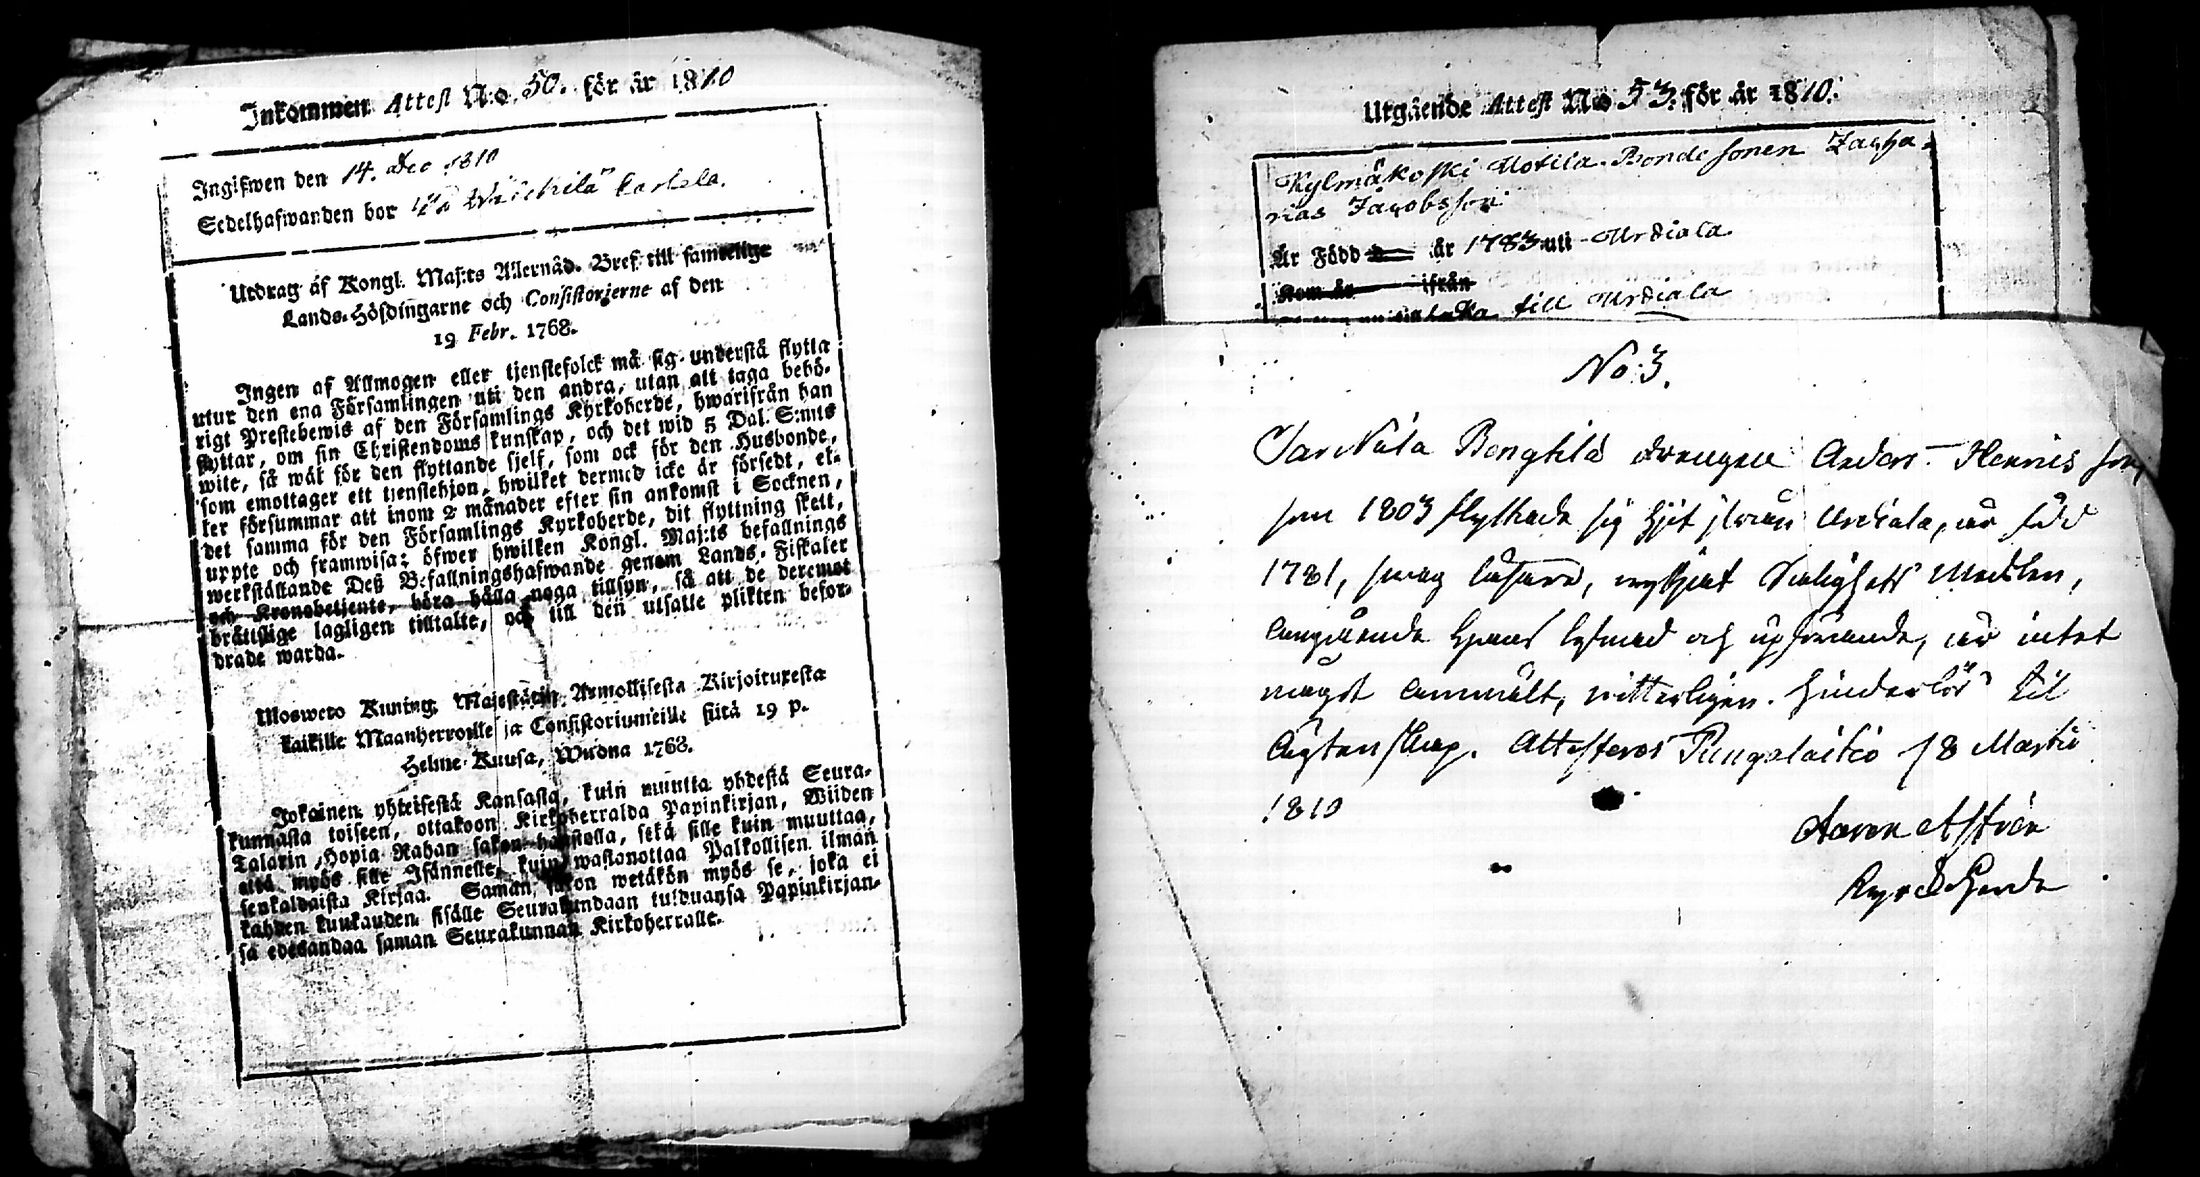 Inkommen Attest N:o 50. för år 1810
Ingifwen den 14. Dec 1810
Sedelhafwanden bor
Utdrag af Kongl. Maj:ts Allernåd. Bref till samtelige
Lands-Höfdingarne och Consistorierne af den
19 Febr. 1768.
Ingen af Allmogen eller tjenstefolck må sig understå flytta
utur den ena Församlingen uti den andra, utan att taga behö-
rigt Prestebewis af den Församlings Kyrkoherde, hwarifrån han
flyttar, om sin Christendoms kunskap, och det wid 5 Dal. S:mts
wite, så wäl för den flyttande sjelf, som ock för den Husbonde,
som emottager ett tjenstehjon, hwilket dermed icke är försedt, el-
ler försummar att inom 2 månader efter sin ankomst i Socknen,
det samma för den Församlings Kyrkoherde, dit flyttning skett,
uppte och framwisa; öfwer hwilken Kongl. Maj:ts befallnings
werkställande Deß Befallningshafwande genom Lands-Fiskaler
och Kronobetjente, böra hålla noga tillsyn, så att de deremot
brättslige lagligen tilltalte, och till den utsatte plikten befor-
drade warda.
Mosweto Kuning. Majestätin Armollisesta Kirjoituxesta
kaikille Maanherroille ja Consistoriumeille siitä 19 p.
Helme-Kuusa, Wuona 1768.
Jokainen yhteisestä Kansasta, kuin muutta yhdestä Seura-
kunnasta toiseen, ottakoon Kirkoherralda Papinkirjan, Wiiden
Talarin Hopia Rahan sakon haastolla, sekä sille kuin muuttaa,
että myös sille Isännelle, kuin wastanottaa Palkollisen ilman
senkaldaista Kirjaa. Saman sakon wetäkön myös se, joka ei
kahden kuukauden sisälle Seurakundaan tulduansa Papinkirjan-
sa edesandaa saman Seurakunnan Kirkoherralle.
Utgående Attest N:o 53. för år 1810.
Kylmäkoski Uotila Bonde sonen Zacha-
rias Jacobsson
Är Född år 1783 uti Urdiala
Kom år ifrån
till Urdiala
No 3.
Bengtilä drengen Anders Henricsson,
som 1803 flyttade sig hjit ifrån Urdiala, är född
1781, swag läsare, nyttjat Salighets Medlen,
angående hans lefnad och upförande, är intet
något anmält, witterligen hinderlös til
ägtenskap. Attesteras Pungalaitio 18 Martii
1810
Aaron
Kyrckoherde